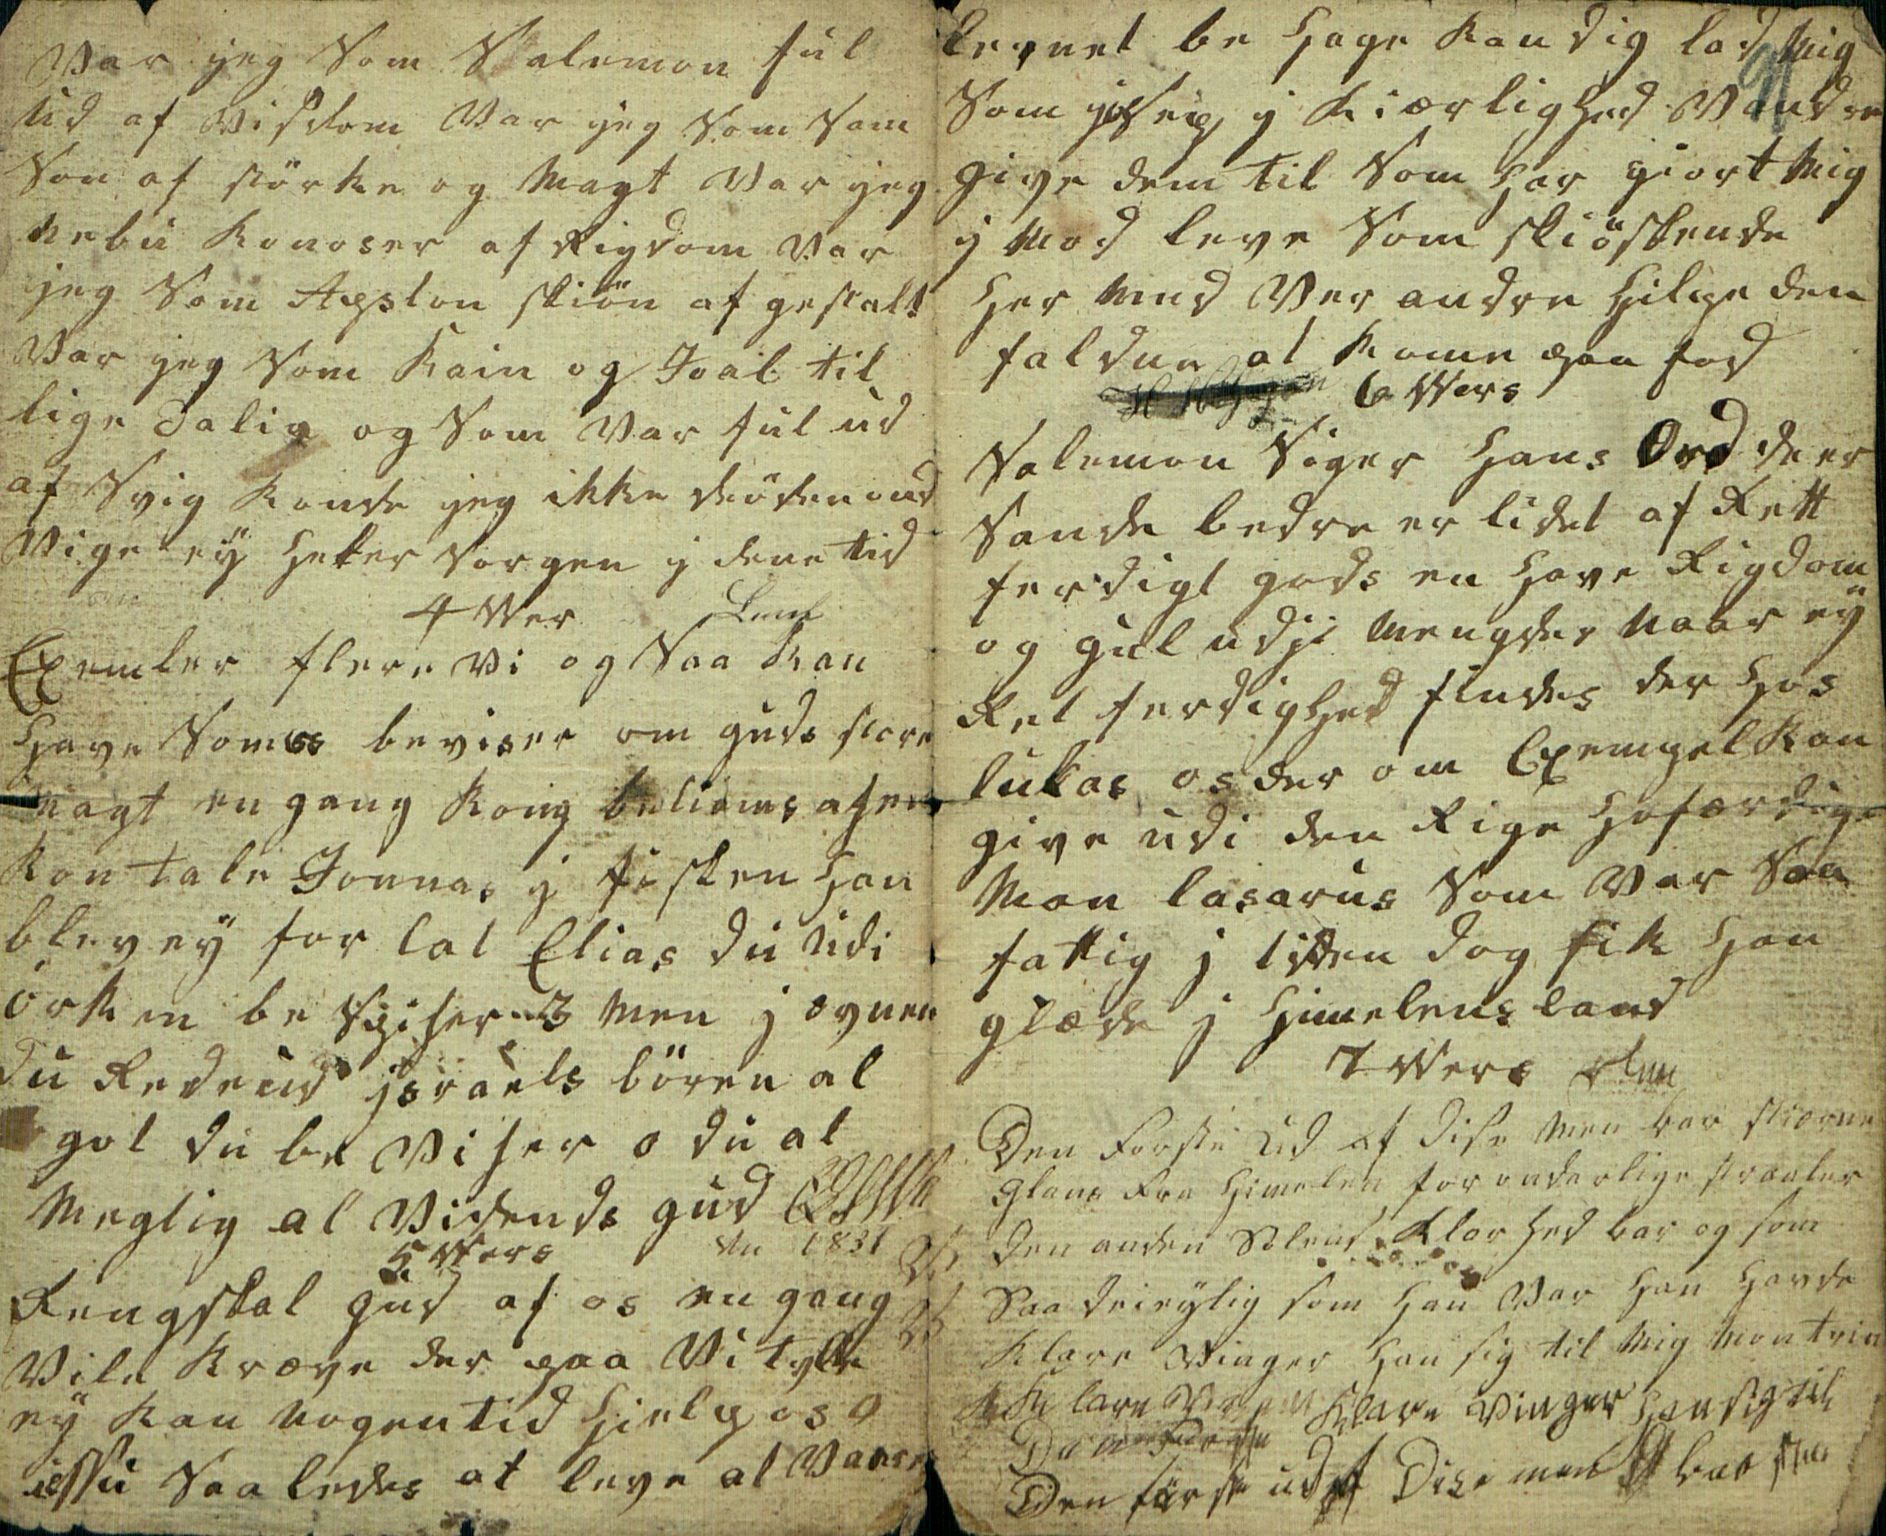 Var jeg Som Salemon ful
ud af Visdom Var jeg Som Sam
Son af störke og Magt Var jeg
Nebu Konoser af Rigdom Var
jeg Som Apslon skiön af gestalt
Var jeg Som Kain og Joab til
lige Falig og Som Var ful ud
af Svig Konde jeg ikke döden und
Vige eÿ heler Sorgen j dene tid
4 Vers
Exemler flere Vi og Saa Kan
Have Somos beviser om guds store
Magt en gang Kong beliams asen
Kon tale Jonnas j fisken han
blev eÿ for lat Elias du udi
örken be Spiser 3 Men j ovnen
du Redeud jsraels bören al
got du be Viser o du al
Meglig al Vidends gud
5 Vers 1831
Rengskal gud af os en gang
Vile Kræve der paa Vi tyle
eÿ Kan Nogen tid hielp os o
iessu Saa ledes at leve at Vaare
levnet be Hage Kan dig lad Mig
Som josep j Kiærlighed Vandre
give dem til Som har giort Mig
j Mod leve Som skiöskende
her Med Ver andre hilpe den
faldne at Kome paa fod
6 Vers
Salemon Siger Hans Ord de er
Sande bedre er lidet af Rett
ferdigt gods en Have Rigdom
og gul udji Mengder Naar eÿ
Ret ferdighed findes der Hos
lukas os der om Exempel Kan
give udi den Rige Hofærdige
Man lasarus Som Var Saa
fattig j tiden dog fik Han
glæde j Himelens land
7 Vers
Den Förste ud af dise Men bar stierne
glans Fra Himelen for underlige straaler
den anden Solens Klarhed bar og som
Saa deieylig som han Var han Havde
Klare Vinger han sig til Mig Mon trin
Klare Vinger Han sig til
Den förste ud af Dise men bar